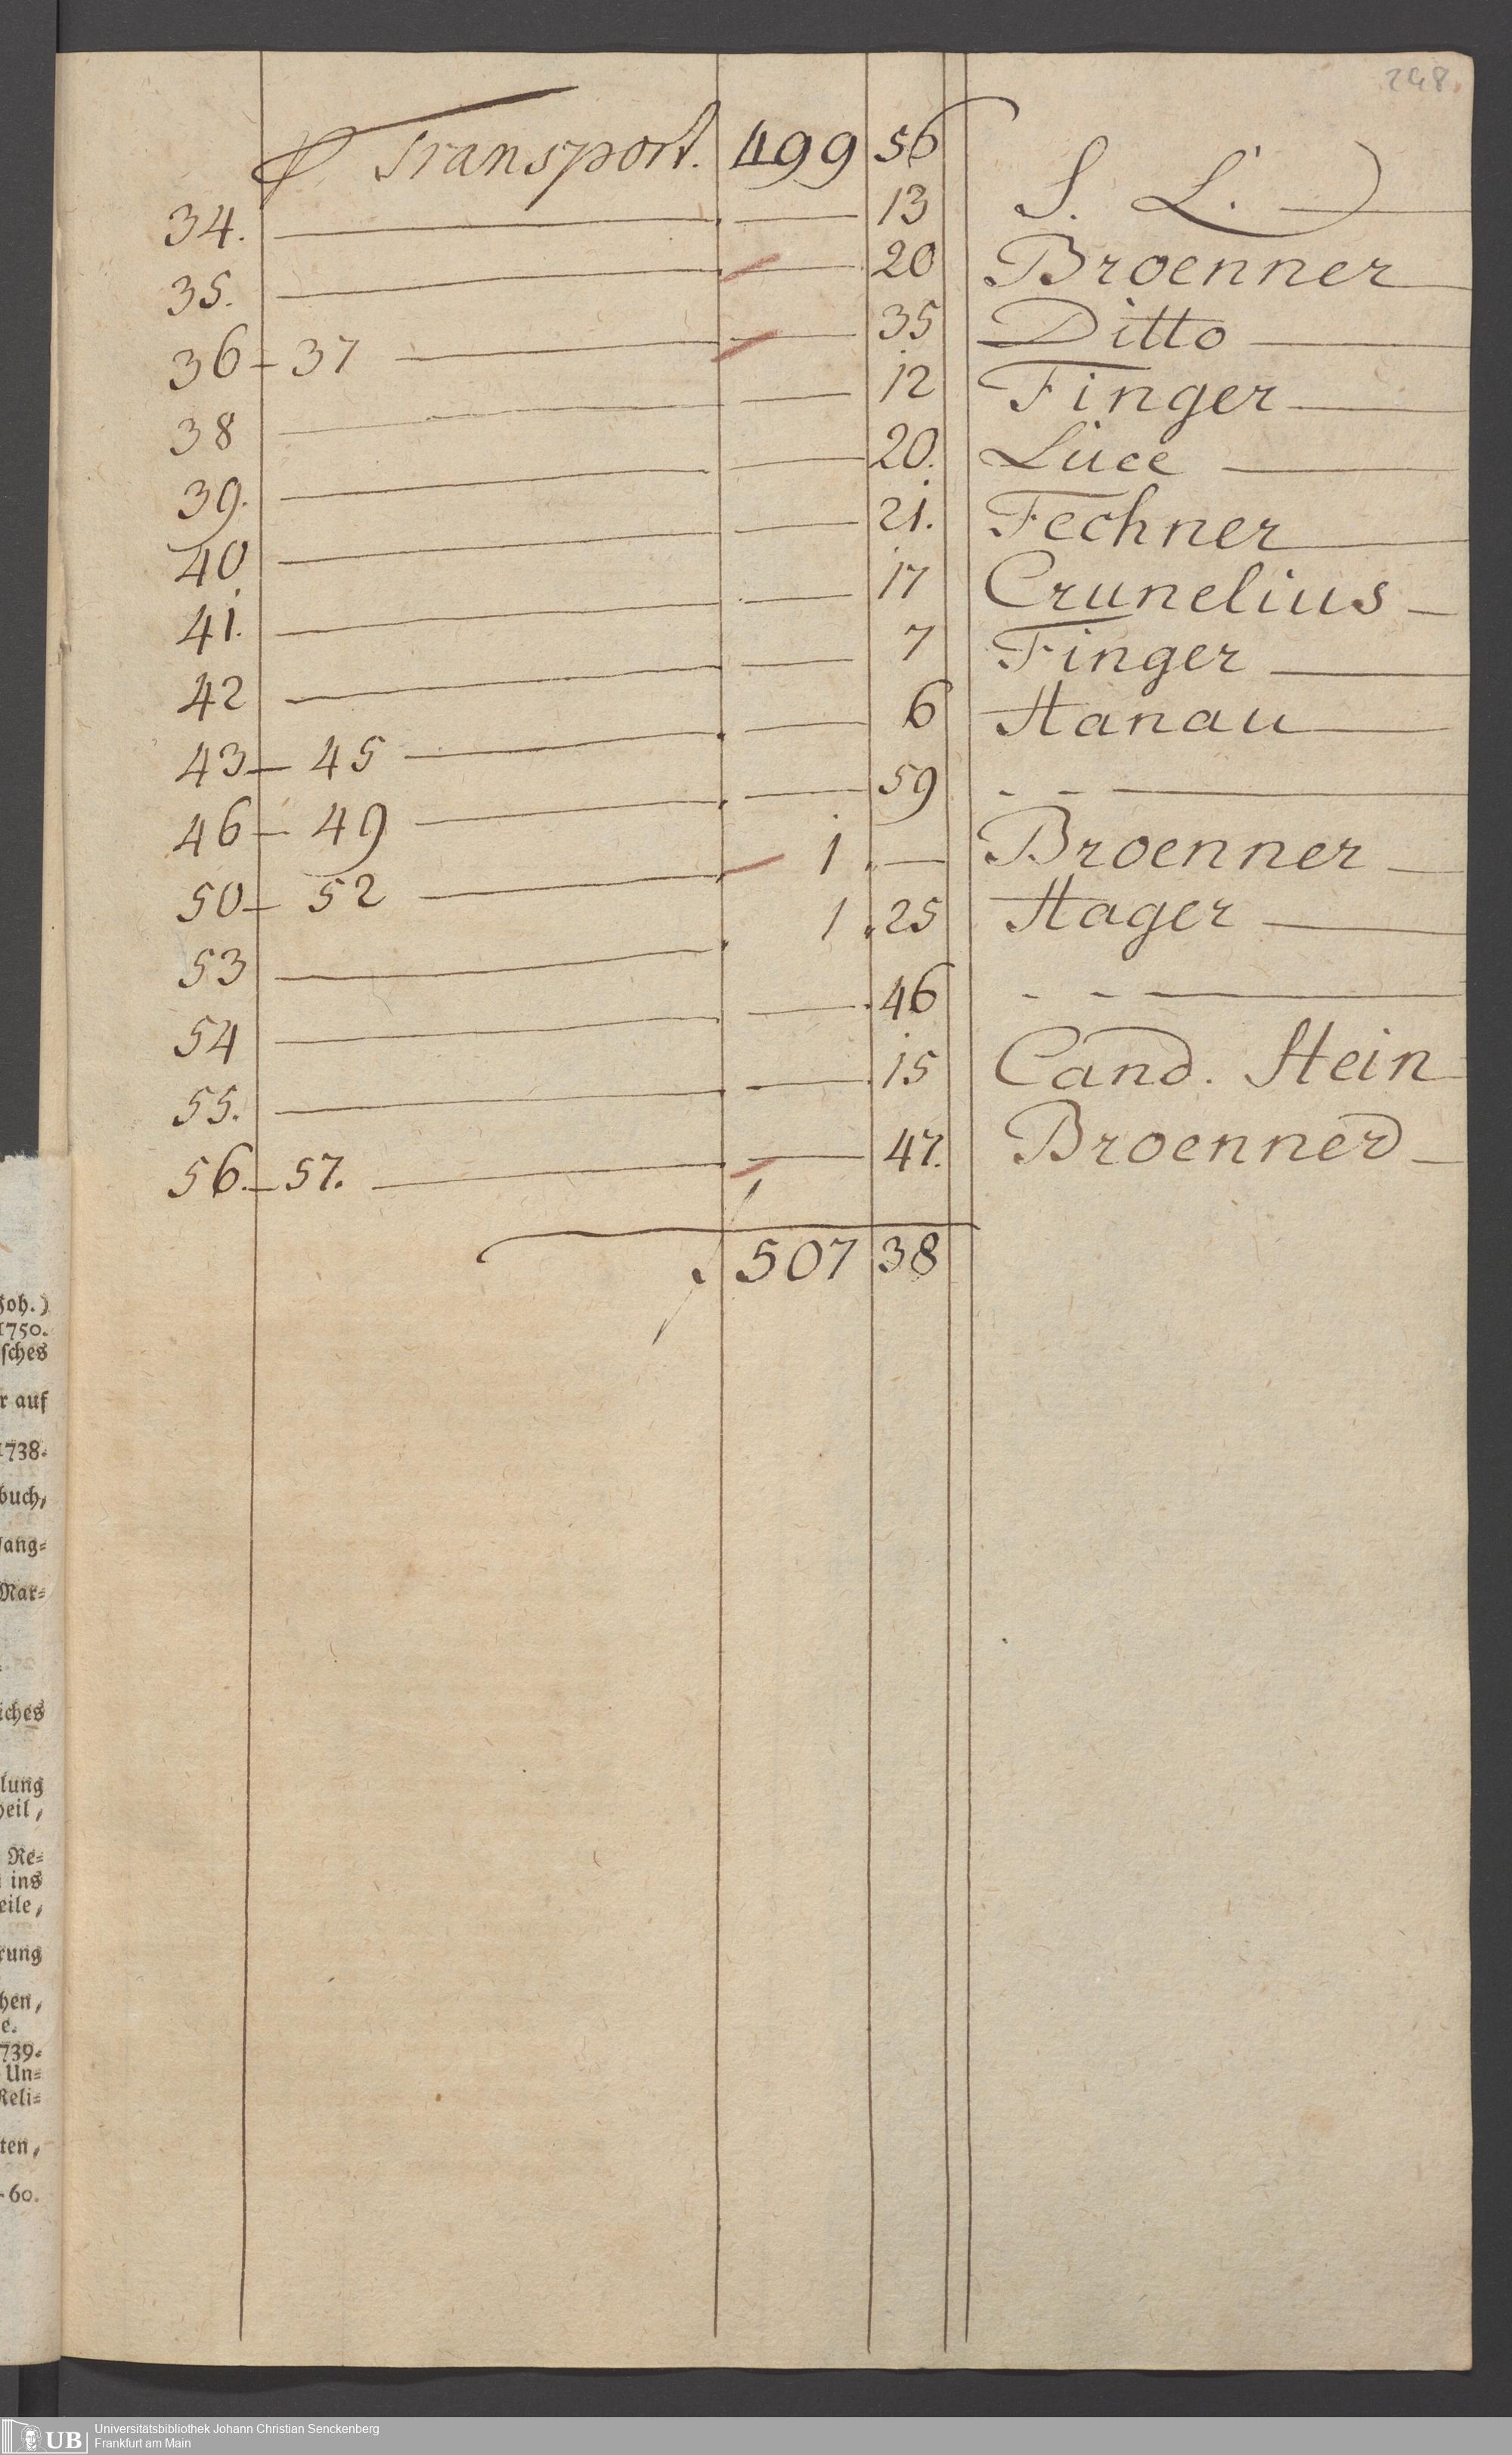 248.
Transport. 499 56
34. — — 13 S. L. —
35. — — 20 Broenner —
36 – 37 — — 35 Ditto —
38 — — 12 Finger —
39. — — 20. Luce —
40 — — 21. Fechner —
41. — — 17 Crunelius —
42 — — 7 Finger —
43 – 45 — — 6 Hanau —
46 – 49 — — 59 - - —
50 – 52 — 1 — Broenner —
53 — 1 25 Hager —
54 — — 46 - - —
55. — — 15 Cand. Stein
56. – 57. — — 47. Broenner —
507 38
Joh.)
1750.
sches
r auf
1738.
buch,
sang=
Mar=
iches
lung
heil,
Re=
ins
eile,
rung
hen,
e.
739.
Un=
Reli=
ten,
-60.
UB Universitätsbibliothek Johann Christian Senckenberg
Frankfurt am Main